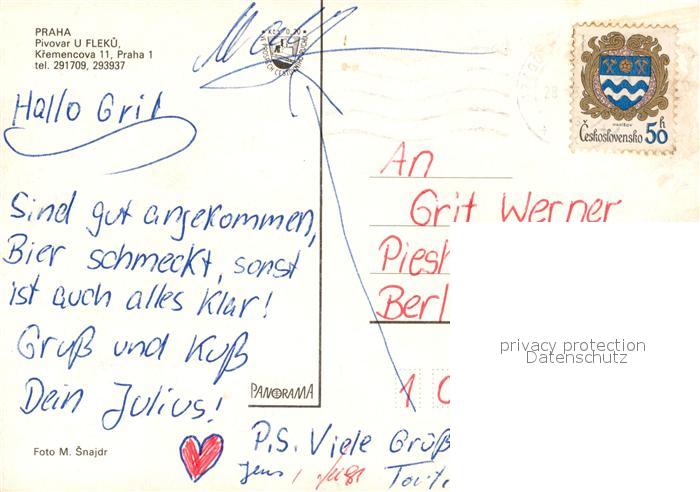 PRAHA
Pivovar U FLEKŮ,
Křemencova 11, Praha 1
tel. 291709, 293937
Kčs 0,70
Československo 50 h
Hallo Grit
Sind gut angekommen,
Bier schmeckt, sonst
ist auch alles klar!
Gruß und Kuß
Dein Julius!
An
Grit Werner
Piesh
Berl
1
privacy protection
Datenschutz
PANORAMA
P.S. Viele Grüß
Jens
Foto M. Šnajdr